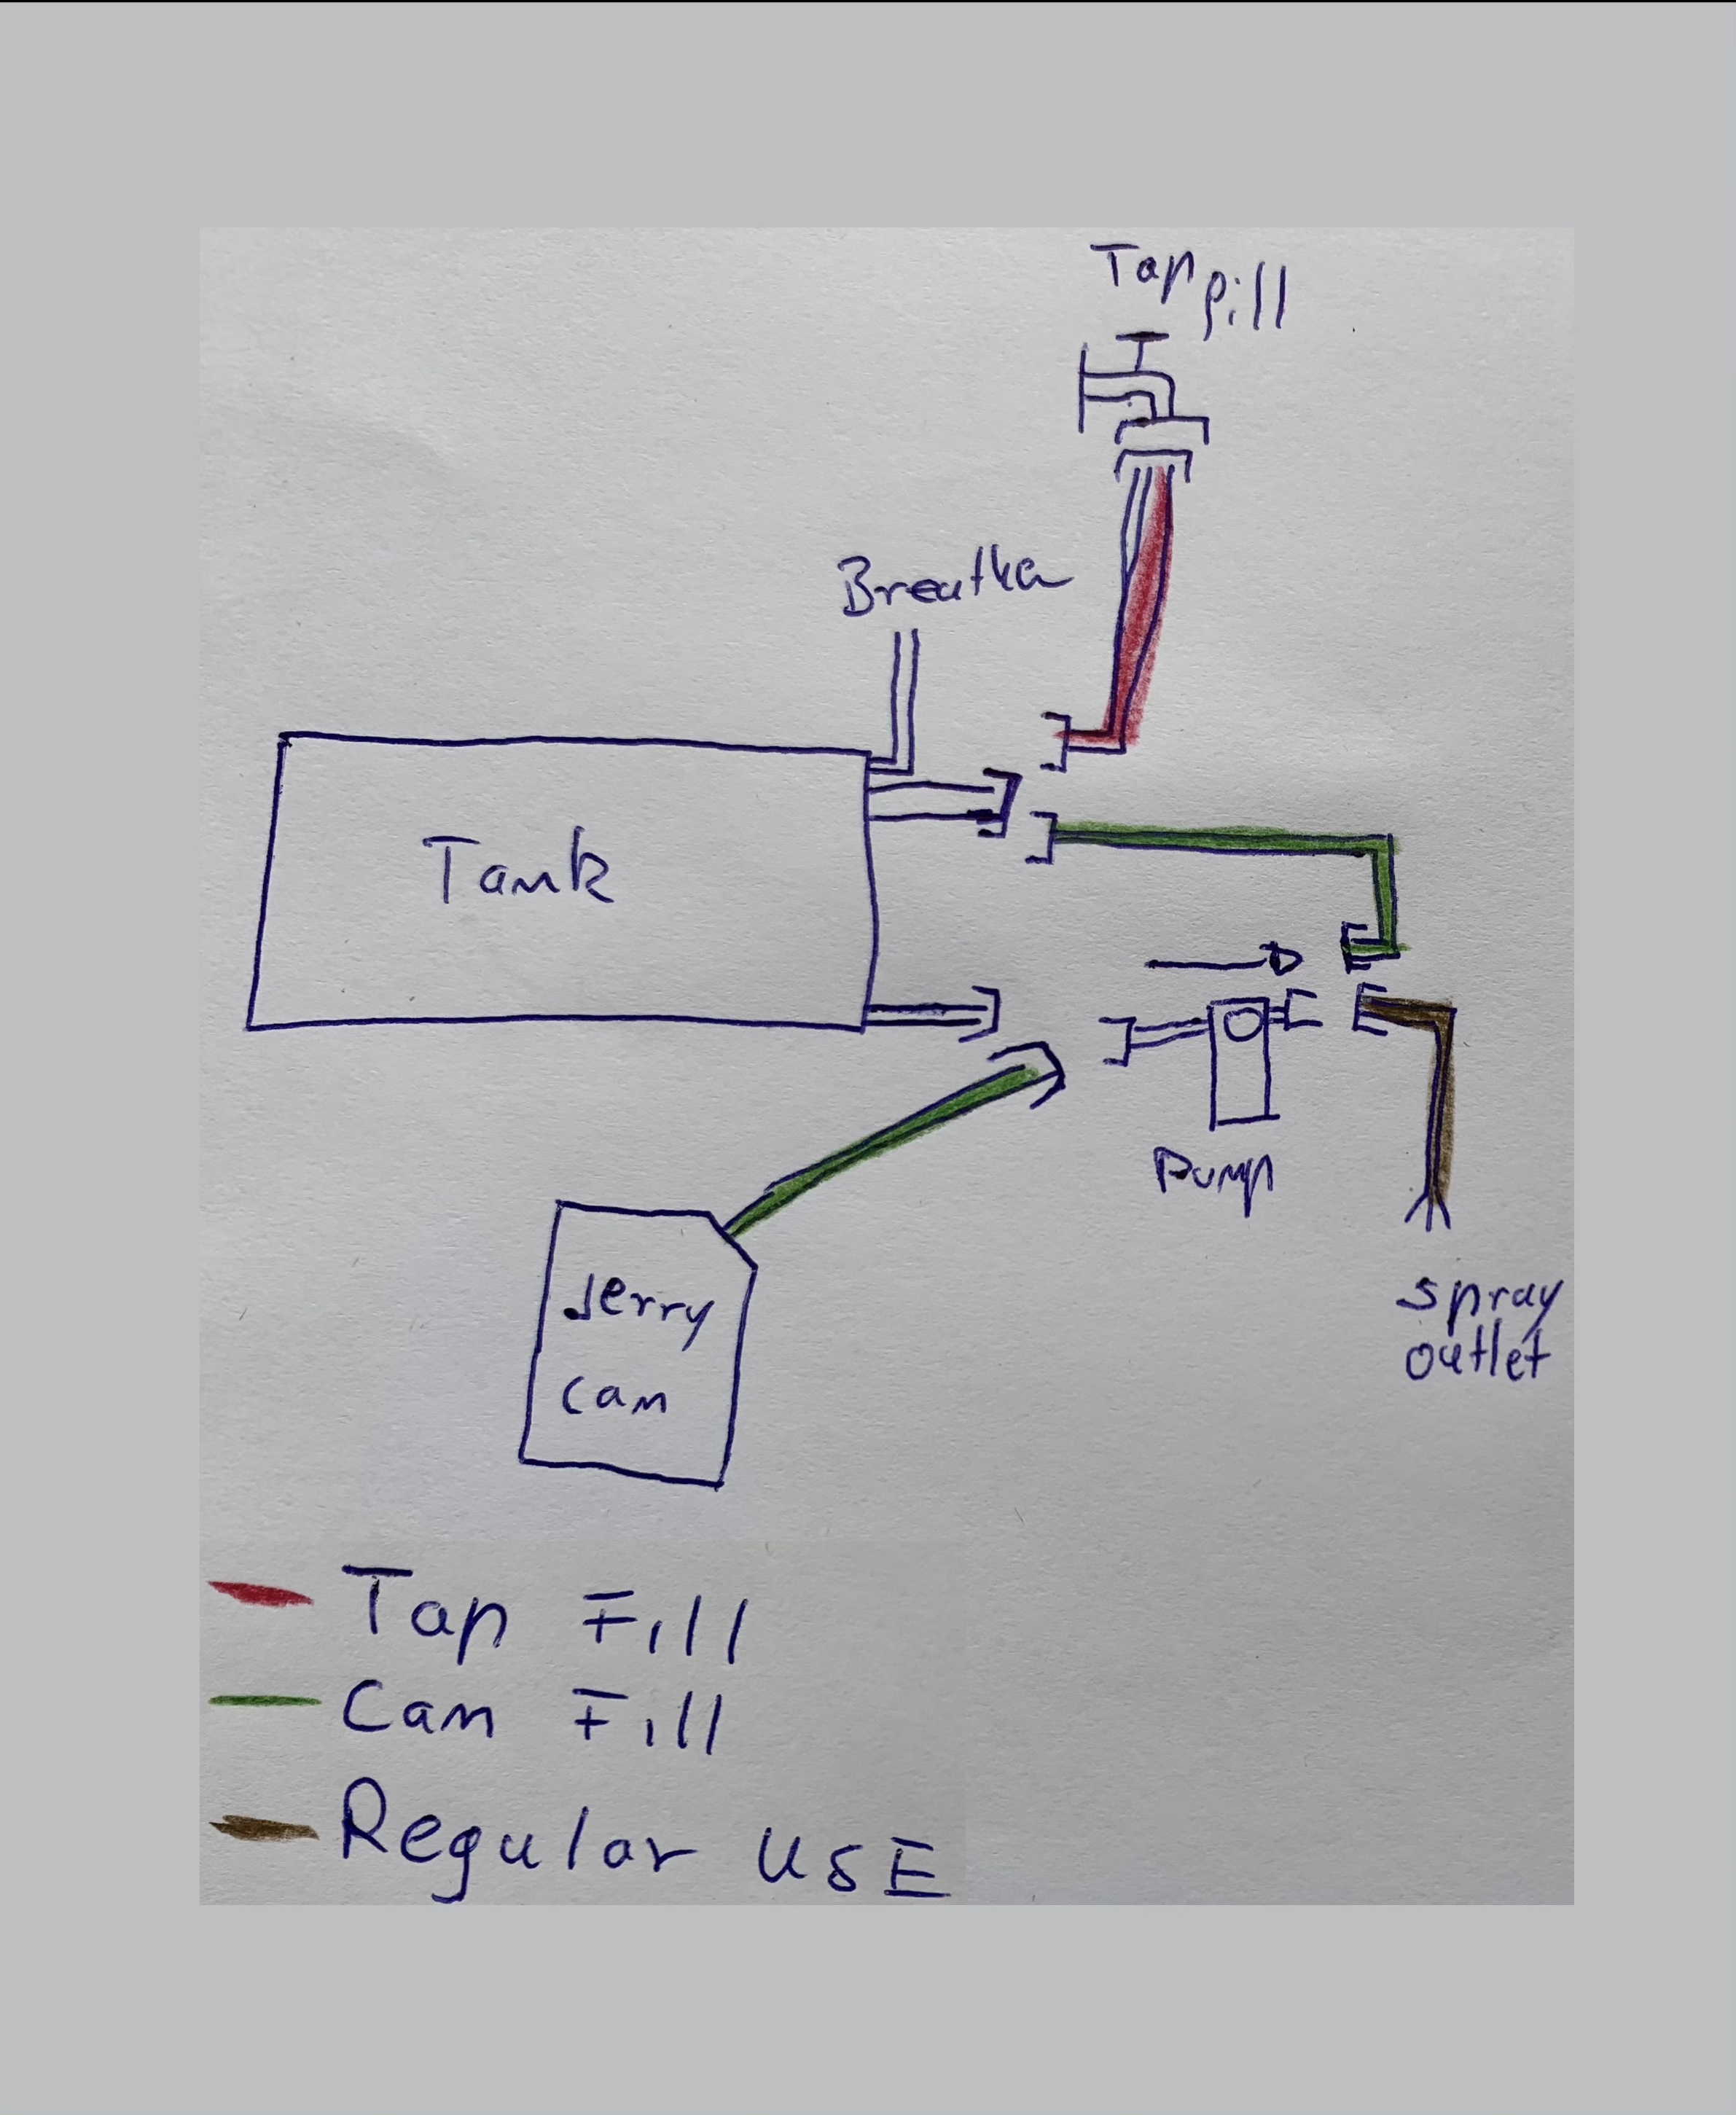 Tap fill
Breather
Tank
Pump
Jerry
can
spray
outlet
Tap Fill
Can Fill
Regular USE